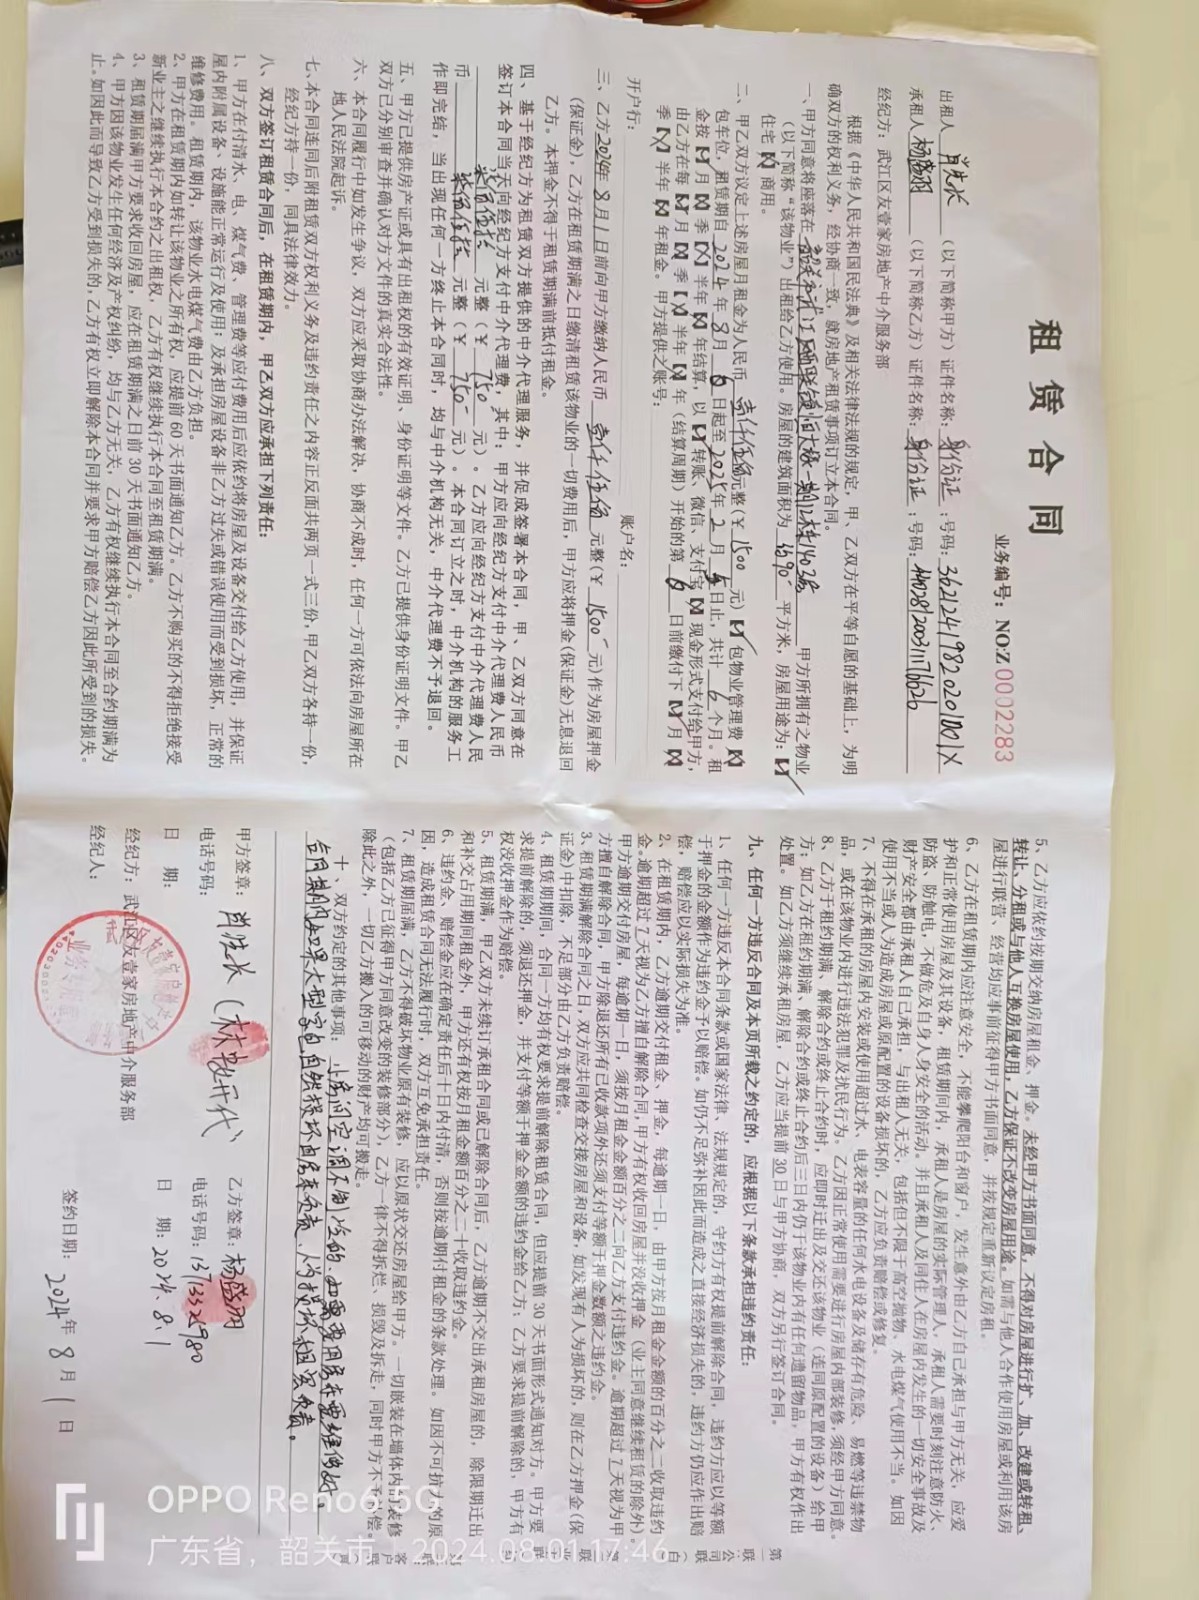 租 赁 合 同
业务编号：NO:Z 0002283
出租人 肖洪长 （以下简称甲方）证件名称：身份证；号码：
承租人 杨盛羽 （以下简称乙方）证件名称：身份证；号码：
经纪方：武江区友壹家房地产中介服务部
根据《中华人民共和国民法典》及相关法律法规的规定，甲、乙双方在平等自愿的基础上，为明
确双方的权利义务，经协商一致，就房地产租赁事项订立本合同。
一、甲方同意将座落在 韶关市武江区 甲方所拥有之物业
（以下简称“该物业”）出租给乙方使用。房屋的建筑面积为 平方米，房屋用途为：
住宅 商用。
二、甲乙双方议定上述房屋月租金为人民币 壹仟伍佰 元整（￥ 1500 元） 包物业管理费
包车位，租赁期自 2024 年 8 月 日起至 2025 年 2 月 日止，共计 6 个月。租
金按 月 季 半年 年结算，以 转账、微信、支付宝 现金形式支付给甲方，
由乙方在每 月 季 半年 年（结算周期）开始的第 日前缴付下 月
季 半年 年租金。甲方提供之账号：
开户行： 账户名：
三、乙方 2024年 8 月 1 日前向甲方缴纳人民币 壹仟伍佰 元整（￥ 1500 元）作为房屋押金
（保证金），乙方在租赁期满之日缴清租赁该物业的一切费用后，甲方应将押金（保证金）无息退回
乙方。本押金不得于租赁期满前抵付租金。
四、基于经纪方为租赁双方提供的中介代理服务，并促成签署本合同，甲、乙双方同意在
签订本合同当天向经纪方支付中介代理费，其中：甲方应向经纪方支付中介代理费人民币
柒佰伍拾 元整（￥ 750 元）。乙方应向经纪方支付中介代理费人民
币 柒佰伍拾 元整（￥ 750 元）。本合同订立之时，中介机构的服务工
作即完结，当出现任何一方终止本合同时，均与中介机构无关，中介代理费不予退回。
五、甲方已提供房产证或具有出租权的有效证明、身份证明等文件。乙方已提供身份证明文件。甲乙
双方已分别审查并确认对方文件的真实合法性。
六、本合同履行中如发生争议，双方应采取协商办法解决，协商不成时，任何一方可依法向房屋所在
地人民法院起诉。
七、本合同连同后附租赁双方权利义务及违约责任之内容正反面共两页一式三份，甲乙双方各持一份，
经纪方持一份，同具法律效力。
八、双方签订租赁合同后，在租赁期内，甲乙双方应承担下列责任：
1、甲方在付清水、电、煤气费、管理费等应付费用后应依约将房屋及设备交付给乙方使用，并保证
屋内附属设备、设施能正常运行及使用；及承担房屋设备非乙方过失或错误使用而受到损坏，正常的
维修费用。租赁期内，该物业水电煤气费由乙方负担。
2、甲方在租赁期内如转让该物业之所有权，应提前 60 天书面通知乙方。乙方不购买的不得拒绝接受
新业主之继续执行本合约之出租权，乙方有权继续执行本合同至租赁期满。
3、租赁期届满甲方要求收回房屋，应在租赁期满之日前 30 天书面通知乙方。
4、甲方因该物业发生任何经济及产权纠纷，均与乙方无关，乙方有权继续执行本合同至合约期满为
止。如因此而导致乙方受到损失的，乙方有权立即解除本合同并要求甲方赔偿乙方因此所受到的损失。
5、乙方应依约按期交纳房屋租金、押金。未经甲方书面同意，不得对房屋进行扩、加、改建或转租、
转让、分租或与他人互换房屋使用，乙方保证不改变房屋用途。如需与他人合作使用房屋或利用该房
屋进行联营、经营均应事前征得甲方书面同意，并按规定重新议定房租。
6、乙方在租赁期内应注意安全，不能攀爬阳台和窗户，发生意外由乙方自己承担与甲方无关，应爱
护和正常使用房屋及其设备，租赁期间内，承租人是房屋的实际管理人，承租人需要时刻注意防火、
防盗、防触电，不做危及自身人身安全的活动，并且承租人及同住人在房屋内发生的一切安全事故及
财产安全都由承租人自己承担，与出租人无关，包括但不限于高空抛物、水电煤气使用不当。如因
使用不当或人为造成房屋或原配置的设备损坏的，乙方应负责赔偿或修复。
7、不得在承租的房屋内安装或使用超过水、电表容量的任何水电设备及储存有危险、易燃等违禁物
品，或在该物业内进行违法犯罪及扰民行为。乙方因正常使用需要进行房屋内部装修，须经甲方同意。
8、乙方于租约期满，解除合约或终止合约时，应即时迁出及交还该物业（连同原配置的设备）给甲
方；如乙方在租约期满、解除合约或终止合约后三日内仍于该物业内有任何遗留物品，甲方有权作出
处置。如乙方须继续承租房屋，乙方应当提前 30 日与甲方协商，双方另行签订合同。
九、任何一方违反合同及本页所载之约定的，应根据以下条款承担违约责任：
1、任何一方违反本合同条款或国家法律、法规规定的，守约方有权提前解除合同，违约方应以等额
于押金的金额作为违约金予以赔偿。如仍不足弥补因此而造成之直接经济损失的，违约方仍应作出赔
偿，赔偿应以实际损失为准。
2、在租赁期内，乙方逾期交付租金、押金，每逾期一日，由甲方按月租金金额的百分之二收取违约
金。逾期超过 7 天视为乙方擅自解除合同，甲方有权收回房屋并没收押金（业主同意继续租赁的除外）
甲方逾期交付房屋，每逾期一日，须按月租金金额百分之二向乙方支付违约金。逾期超过 7 天视为甲
方擅自解除合同，甲方除退还所有已收款项外还须支付等额于押金数额之违约金。
3、租赁期满解除合同之日，双方应共同检查交接房屋和设备，如发现有人为损坏的，则在乙方押金（保
证金）中扣除，不足部分由乙方负责赔偿。
4、租赁期期间，合同一方均有权要求提前解除租赁合同，但应提前 30 天书面形式通知对方。甲方要
求提前解除的，须退还押金，并支付等额于押金金额的违约金给乙方；乙方要求提前解除的，甲方有
权没收押金作为赔偿。
5、租赁期满，甲乙双方未续订承租合同或已解除合同后，乙方逾期不交出承租房屋的，除限期迁出
和补交占用期间租金外，甲方还有权按月租金额百分之二十收取违约金。
6、违约金、赔偿金应在确定责任后十日内付清，否则按逾期付租金的条款处理。如因不可抗力的原
因，造成租赁合同无法履行时，双方互免承担责任。
7、租赁期届满，乙方不得破坏物业原有装修，应以原状交还房屋给甲方。一切嵌装在墙体内的装修
（包括乙方已征得甲方同意改变的装修部分），乙方一律不得拆烂、损毁及拆走，同时甲方不予补偿。
除此之外，一切乙方搬入的可移动的财产均可搬走。
十、双方约定的其他事项： 小房间空调不制冷的，如需要用房东要维修好。
合同期内如果大型家电自然损坏由房东负责，人为损坏租客负责。
甲方签章： 肖洪长 乙方签章：杨盛羽
电话号码： 电话号码：
日 期： 日 期：2024.8.1
经纪方：武江区友壹家房地产中介服务部
经纪人： 签约日期： 2024 年 8 月 1 日
OPPO Reno6 5G
广东省，韶关市 2024.08.01 17:46